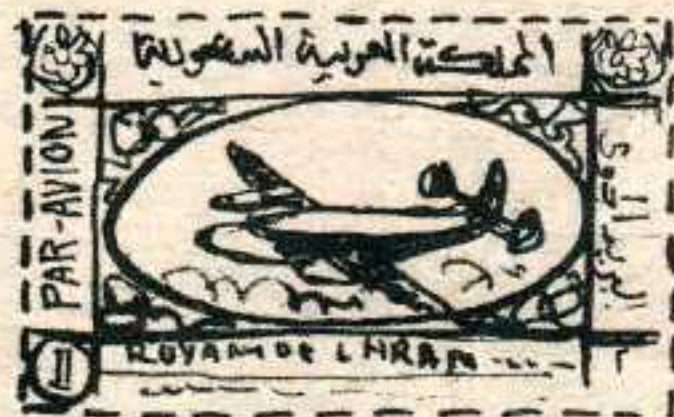 المملكة العربية السعودية
PAR-AVION
البريد الجوي
ROYAM DE L HRAM